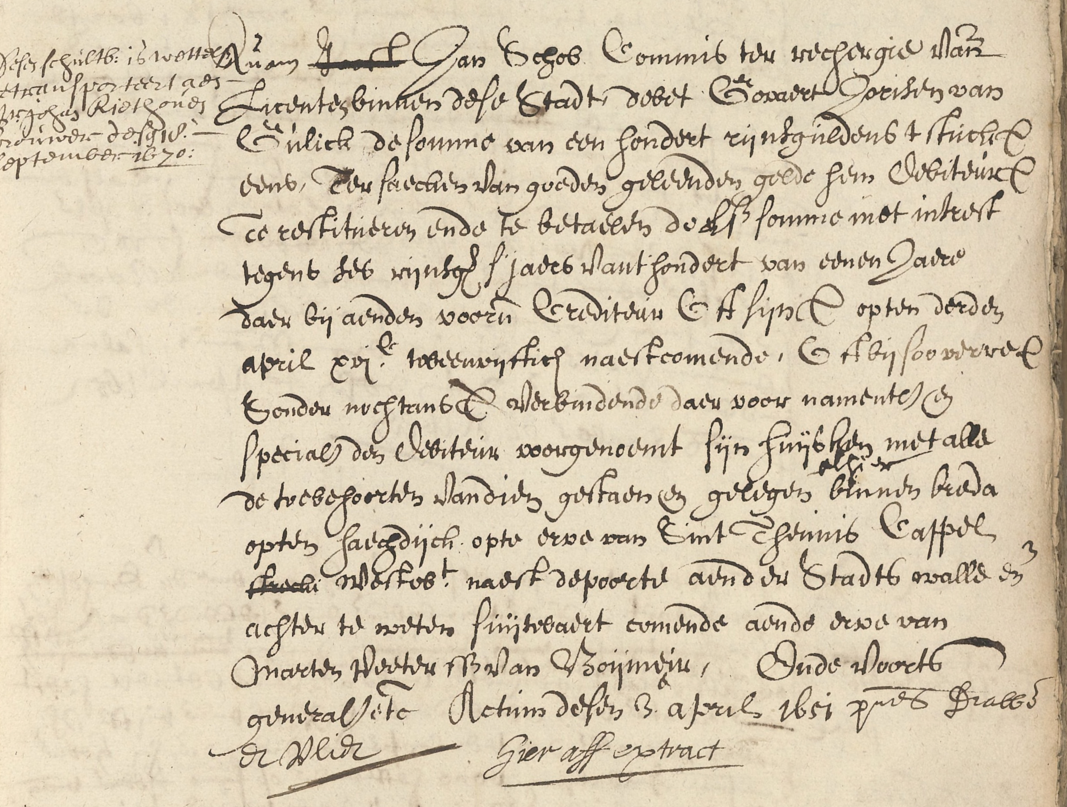 desen schultb: is wettel
getransporteert aen
Sr. Johan Riethoven
brouwer desen 18.
September 1670:
Quam Jan Schob Commis ter rechergie van
Licenten binnen dese Stadt, debet Govaert Jorissen van
Gulick de somme van een hondert rijnsguldens t stuck
eens, Ter saecken van goeden geleenden gelde hem Debiteur
Te restitueren ende te betaelen de selve somme met intrest
tegens ses rijnsg. s'jaers vant hondert van eenen Jaere
daer bij aenden voorn Crediteur Et sijn opten derden
april xvjc tweenvijftich naestcomende, Et bij soo verre
Sonder nochtans Verbindende daer voor namentl en
special den Debiteur voorgenoemt sijn huijsken met alle
de toebehoorten van dien gestaen en gelegen alhier binnen breda
opten haechdijck opte erve van Sint Theunis Cappel
westost naest de poorte aen der Stadts walle en
achter te weten suijtwaert comende aende erve van
Marten Peeterss van Boijmeir, Ende voorts
general etc Actum desen 3 april 1651 pntes Brabb
en Vlier
hier aff extract